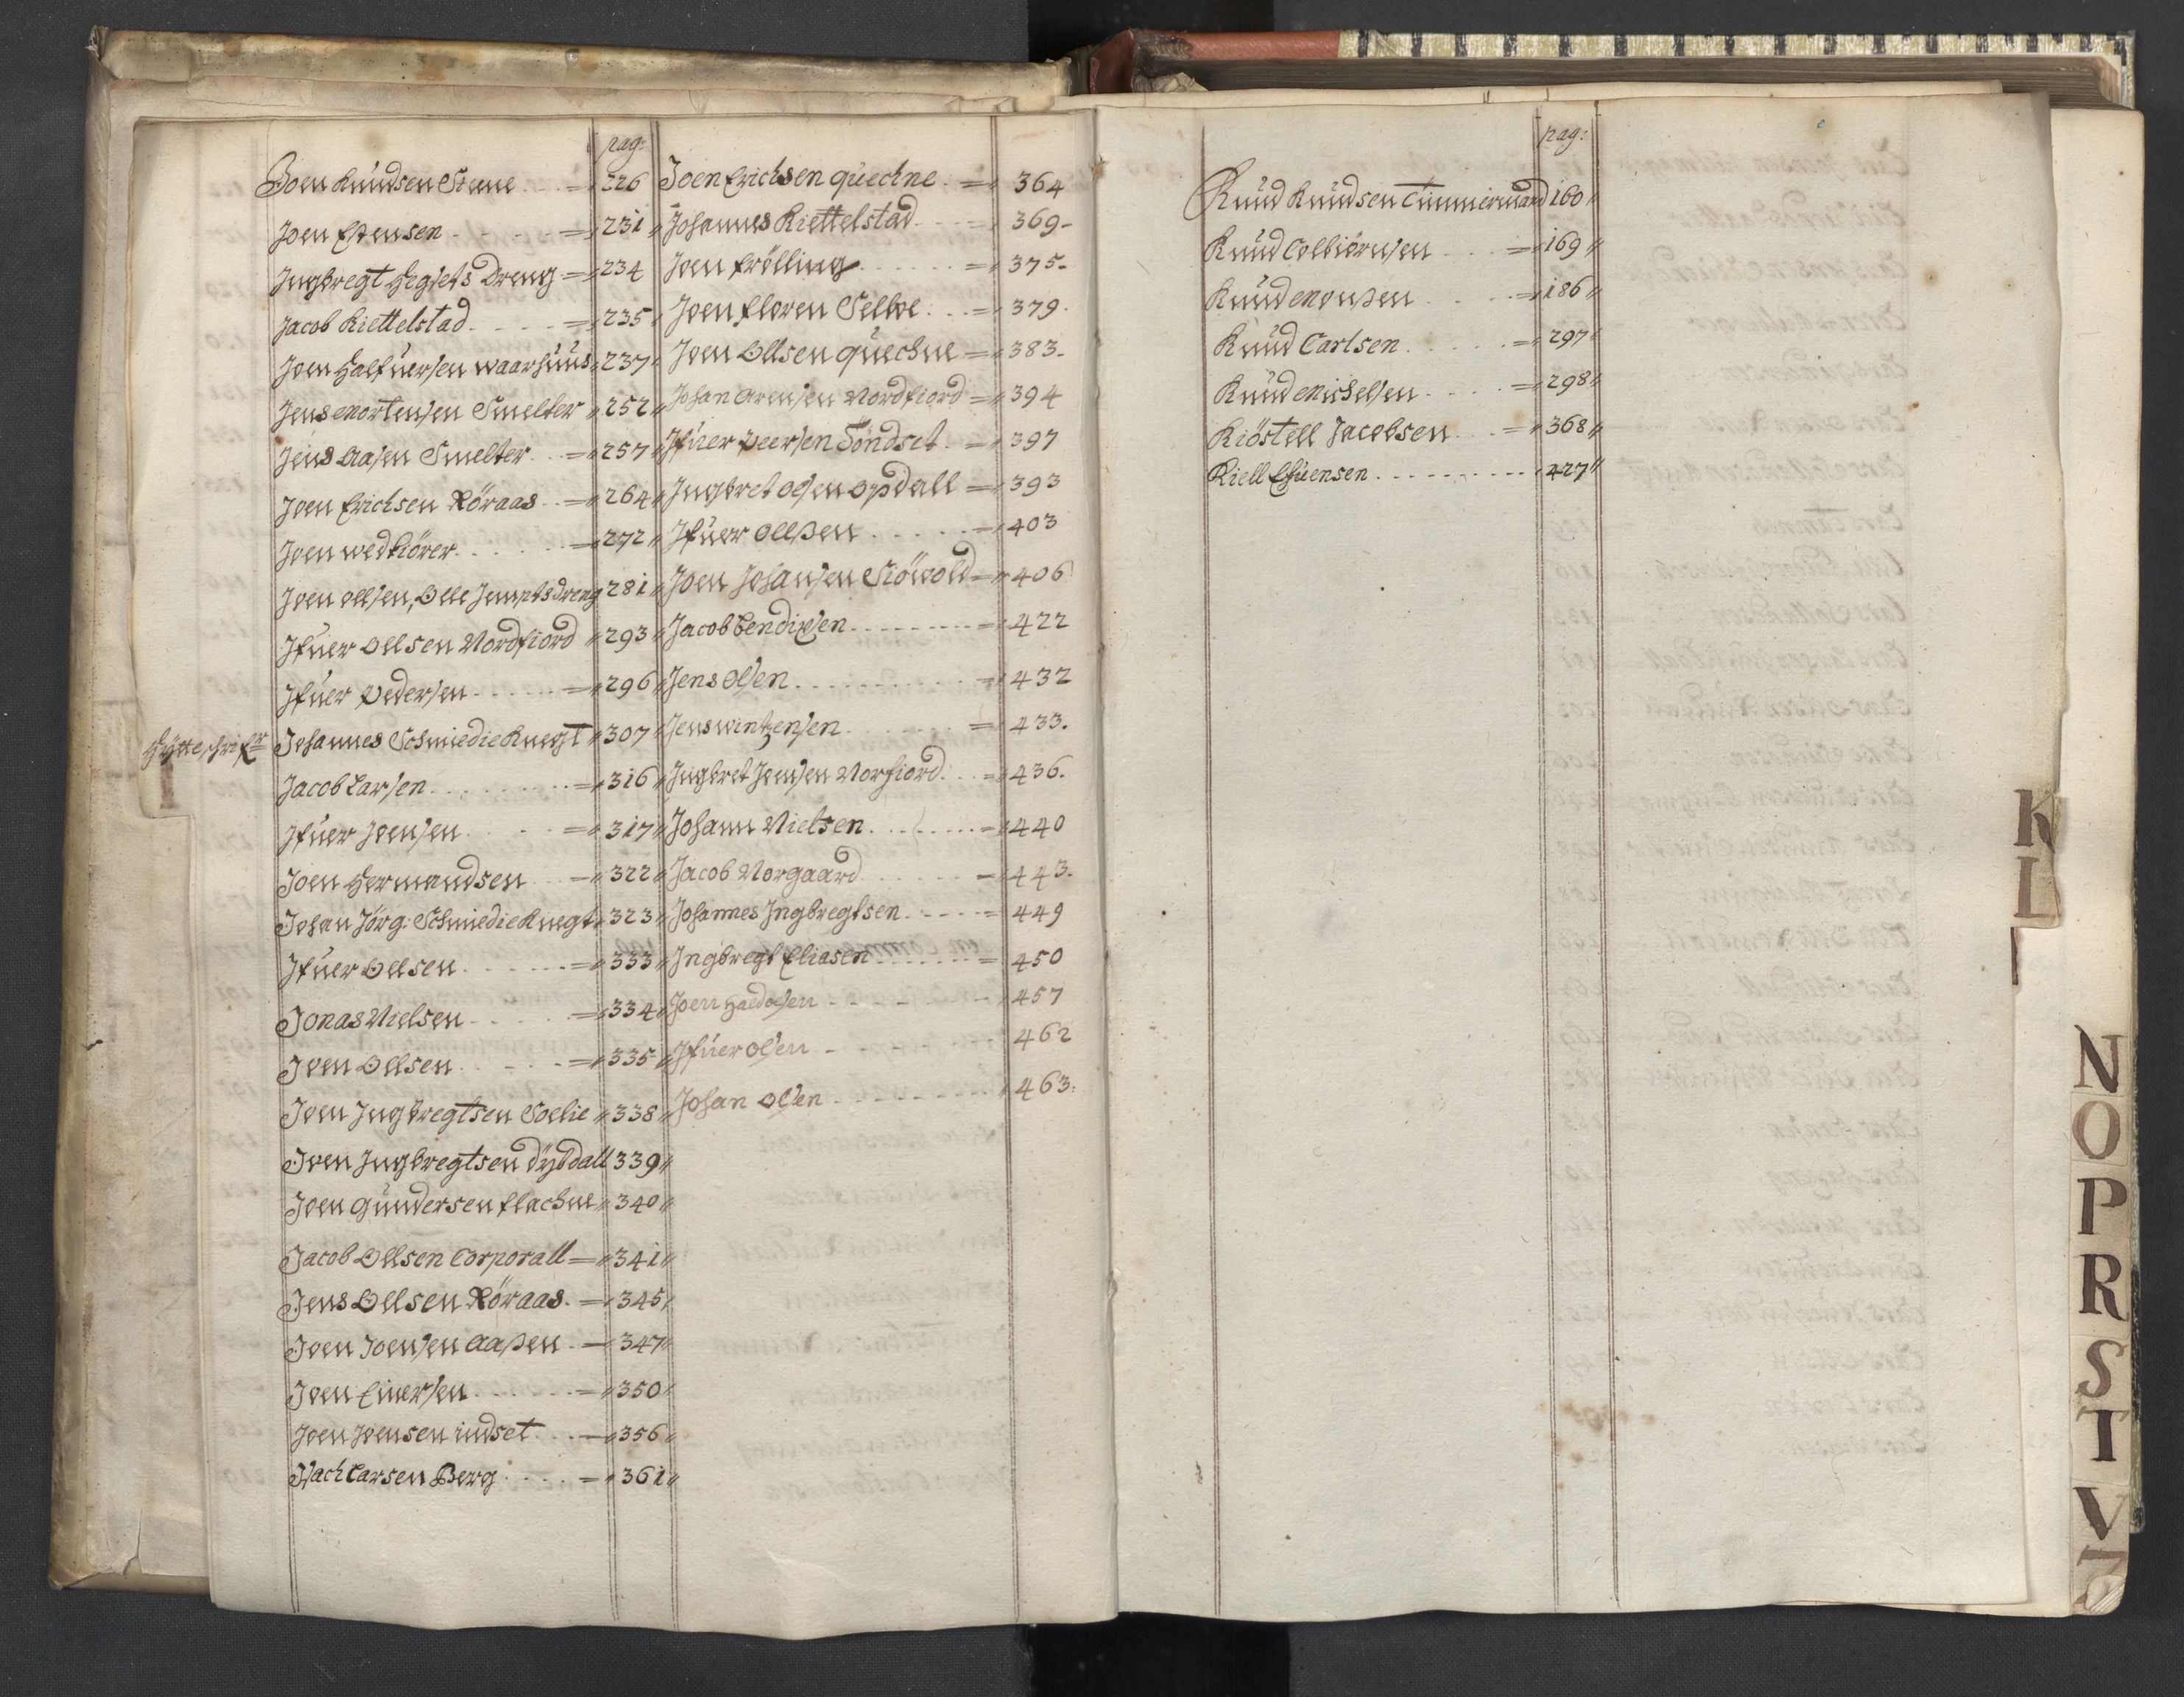 pag:
Joen Knudsen Steene 226
Joen Estensen 231
Ingbregt Hegsets Dreng 234
Jacob Kiettelstad 235
Joen Halfuersen Waarhuus 237
Jens Mortensen Smelter 252
Jens Aasen Smelter 257
Joen Erichsen Röraas 264
Joen Wedkiörer 272
Joen Ollsen, Olle Jempts Dreng 281
Ifuer Ollsen Nordfiord 293
Ifuer Pedersen 296
Johannes Schmiedie Knegt 307
Jacob Larsen 316
Ifuer Joensen 317
Joen Hermandsen 322
Johan Jörg: Schmiedie Knegt 323
Ifuer Ollsen 333
Jonas Nielsen 334
Joen Ollsen 335
Joen Ingbregtsen Soelie 338
Joen Ingbregtsen Dÿbdall 339
Joen Gundersen Flachne 340
Jacob Ollsen Corporall 341
Jens Ollsen Röraas 345
Joen Joensen Aasen 347
Joen Einersen 350
Joen Joensen indset 356
Isach Larsen Berg 361
Joen Erichsen quechne 364
Johannes Kiettelstad 369
Joen Frölling 375
Joen Floren Selboe 379
Joen Ollsen quechne 383
Johan Arensen Nordfiord 394
Ifuer Peersen Töndset 397
Ingbret Olsen Opdall 393
Ifuer Ollsen 403
Joen Johansen Siöwold 406
Jacob Bendixen 422
Jens Olsen 432
Jens Wintzensen 433.
Ingbret Jensen Norfiord 436.
Johann Nielsen 440
Jacob Norgaard 443.
Johannes Ingbregtsen 449
Ingbregt Eliasen 450
Joen 457
Ifuer Olsen 462
Johan Olsen 463:
pag:
Knud Knudsen Timmermand 160
Knud Colbiörnsen 169
Knud Monsen 186
Knud Carlsen 297
Knud Michelsen 298
Kiöstell Jacobsen 368
Kiell Efuensen 427
K
L
N
O
P
R
S
T
V